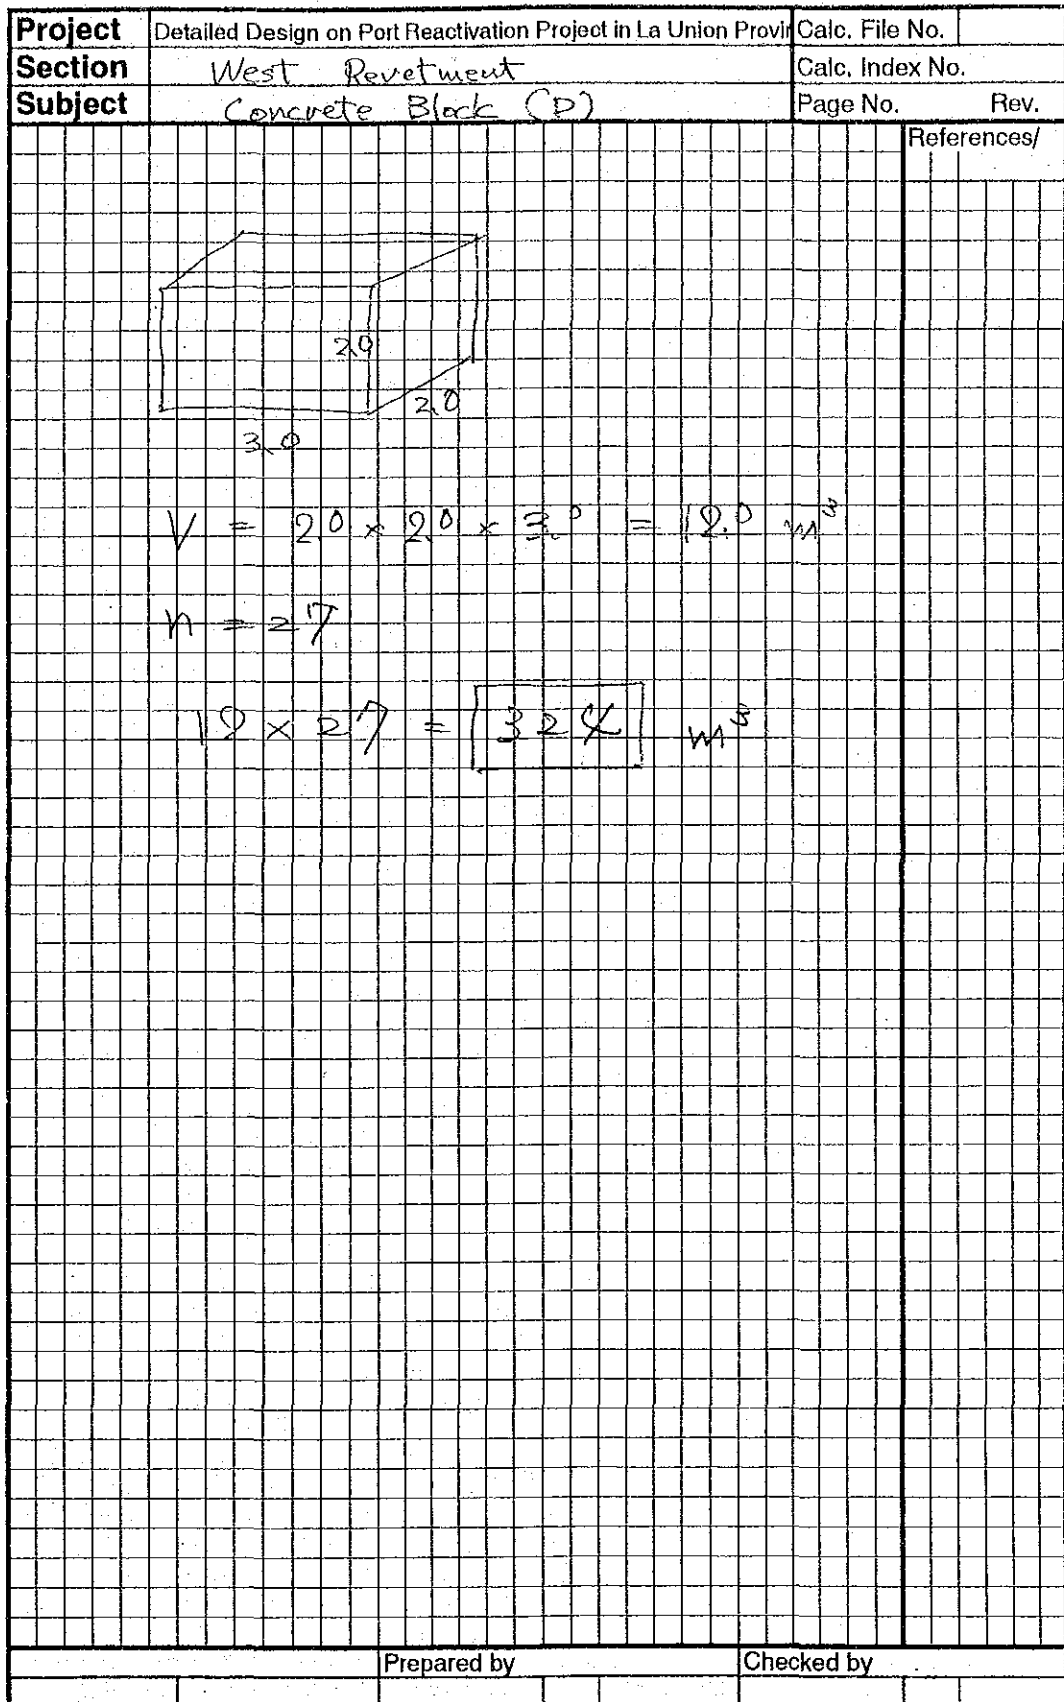 Project Detailed Design on Port Reactivation Project in La Union Provin Calc. File No.
Section West Revetment Calc. Index No.
Subject Concrete Block (D) Page No. Rev.
References/
2.0
2.0
3.0
V = 2.0 × 2.0 × 3.0 = 12.0 m³
n = 27
12 × 27 = 324 m³
Prepared by Checked by